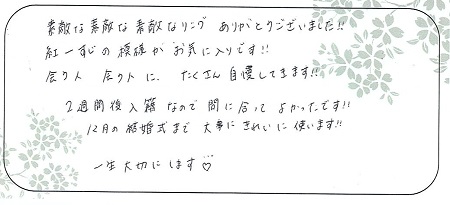 素敵な素敵な素敵なリング ありがとうございました!!
紅一すじの模様が お気に入りです!!
会う人 会う人に、たくさん自慢してきます!!
2週間後入籍 なので 間に合って よかったです!!
12月の結婚式まで 大事に きれいに 使います!!
一生大切にします♡